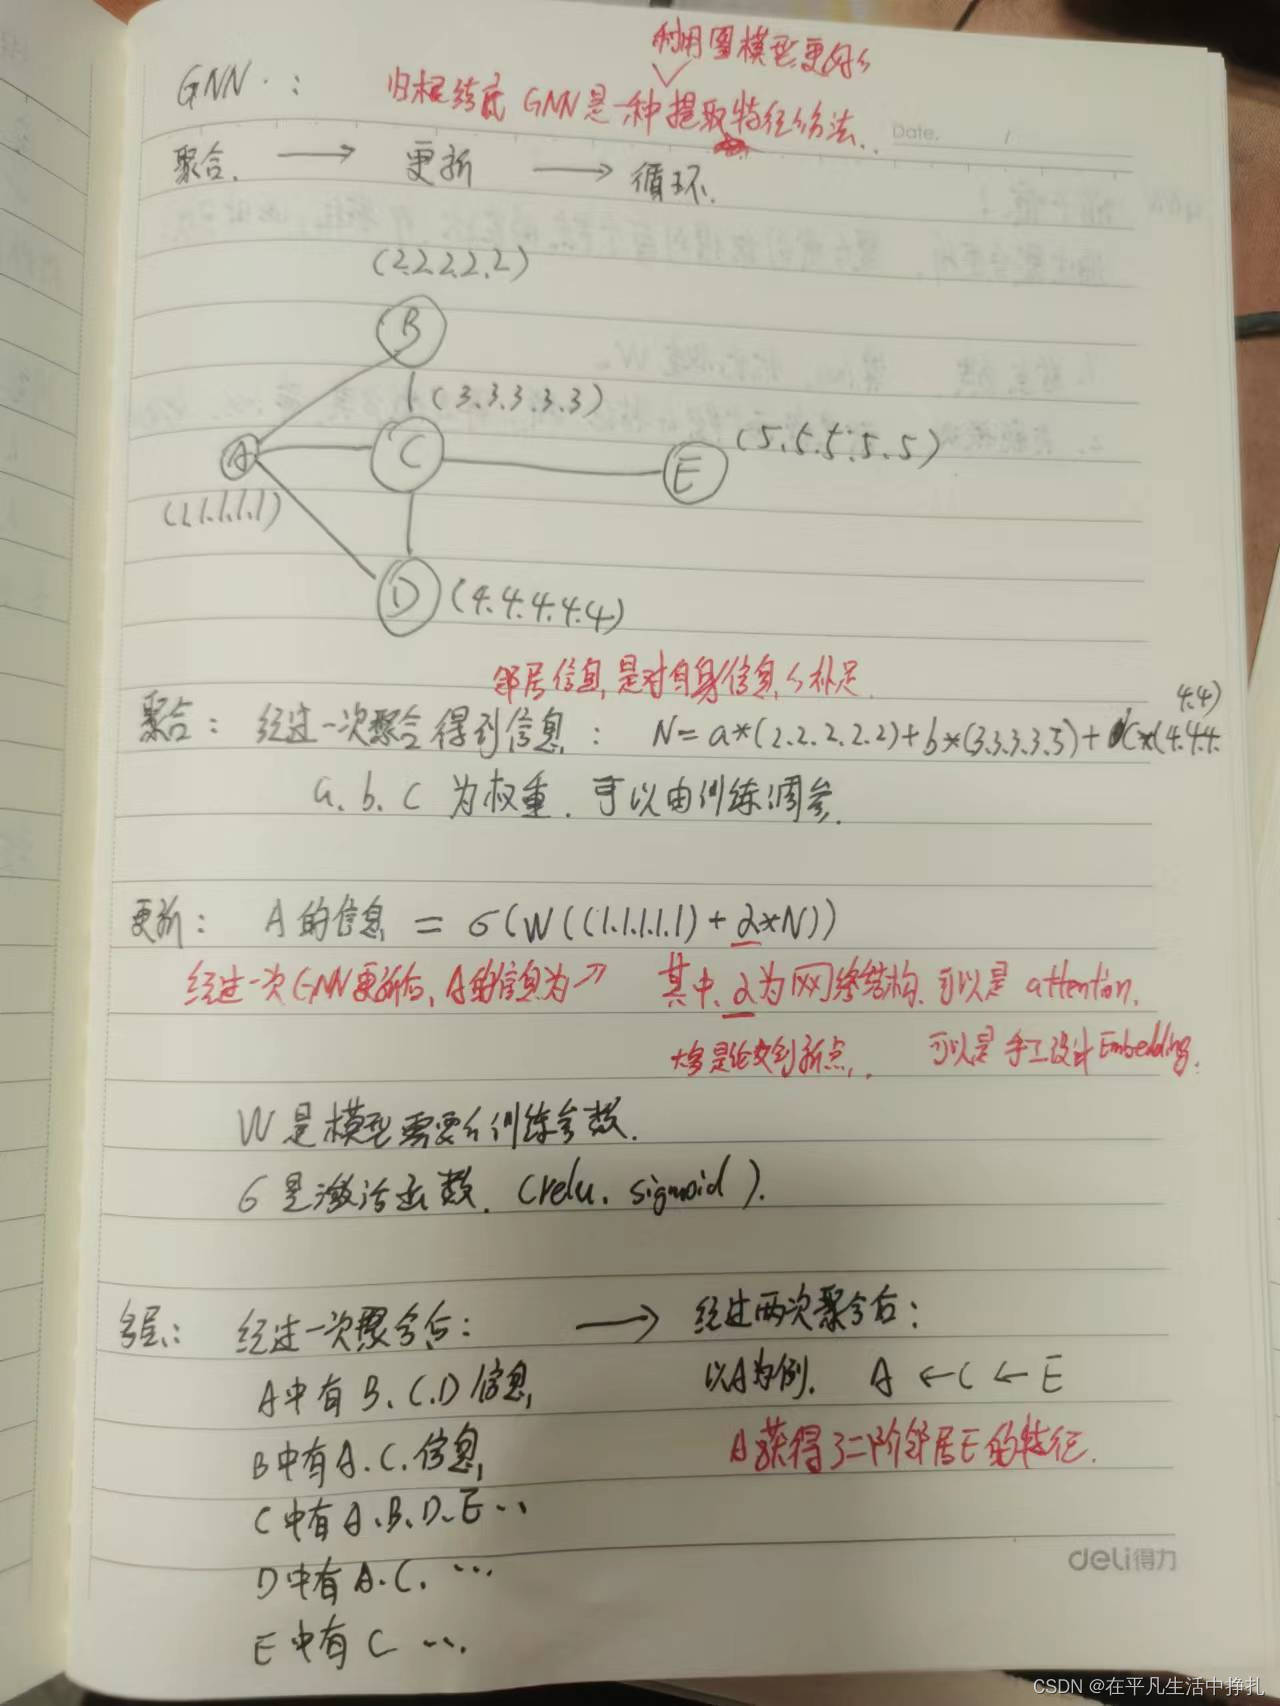 利用图模型更好的
GNN : 归根结底 GNN是一种提取特征的方法.
Date. /
聚合. → 更新 → 循环.
(2.2.2.2.2)
B
(3.3.3.3.3)
A C E (5.5.5.5.5)
(1.1.1.1.1)
D (4.4.4.4.4)
邻居信息,是对自身信息的补足.
4.4)
聚合: 经过一次聚合得到信息: N=a*(2.2.2.2.2)+b*(3.3.3.3.3)+C*(4.4.4.
a.b.c 为权重. 可以由训练调参.
更新: A的信息 = σ(W((1.1.1.1.1)+α*N))
经过一次GNN更新后,A的信息为↗ 其中,α为网络结构.可以是 attention.
可以是 手工设计Embedding.
W是模型需要的训练参数.
σ是激活函数. (relu. sigmoid).
多层: 经过一次聚合后: → 经过两次聚合后:
A中有 B.C.D信息, 以A为例. A ← C ← E
B中有A.C.信息, A获得了二阶邻居E的特征.
C中有A.B.D.E...
D中有A.C. ...
E中有C ...
deli得力
CSDN @在平凡生活中挣扎